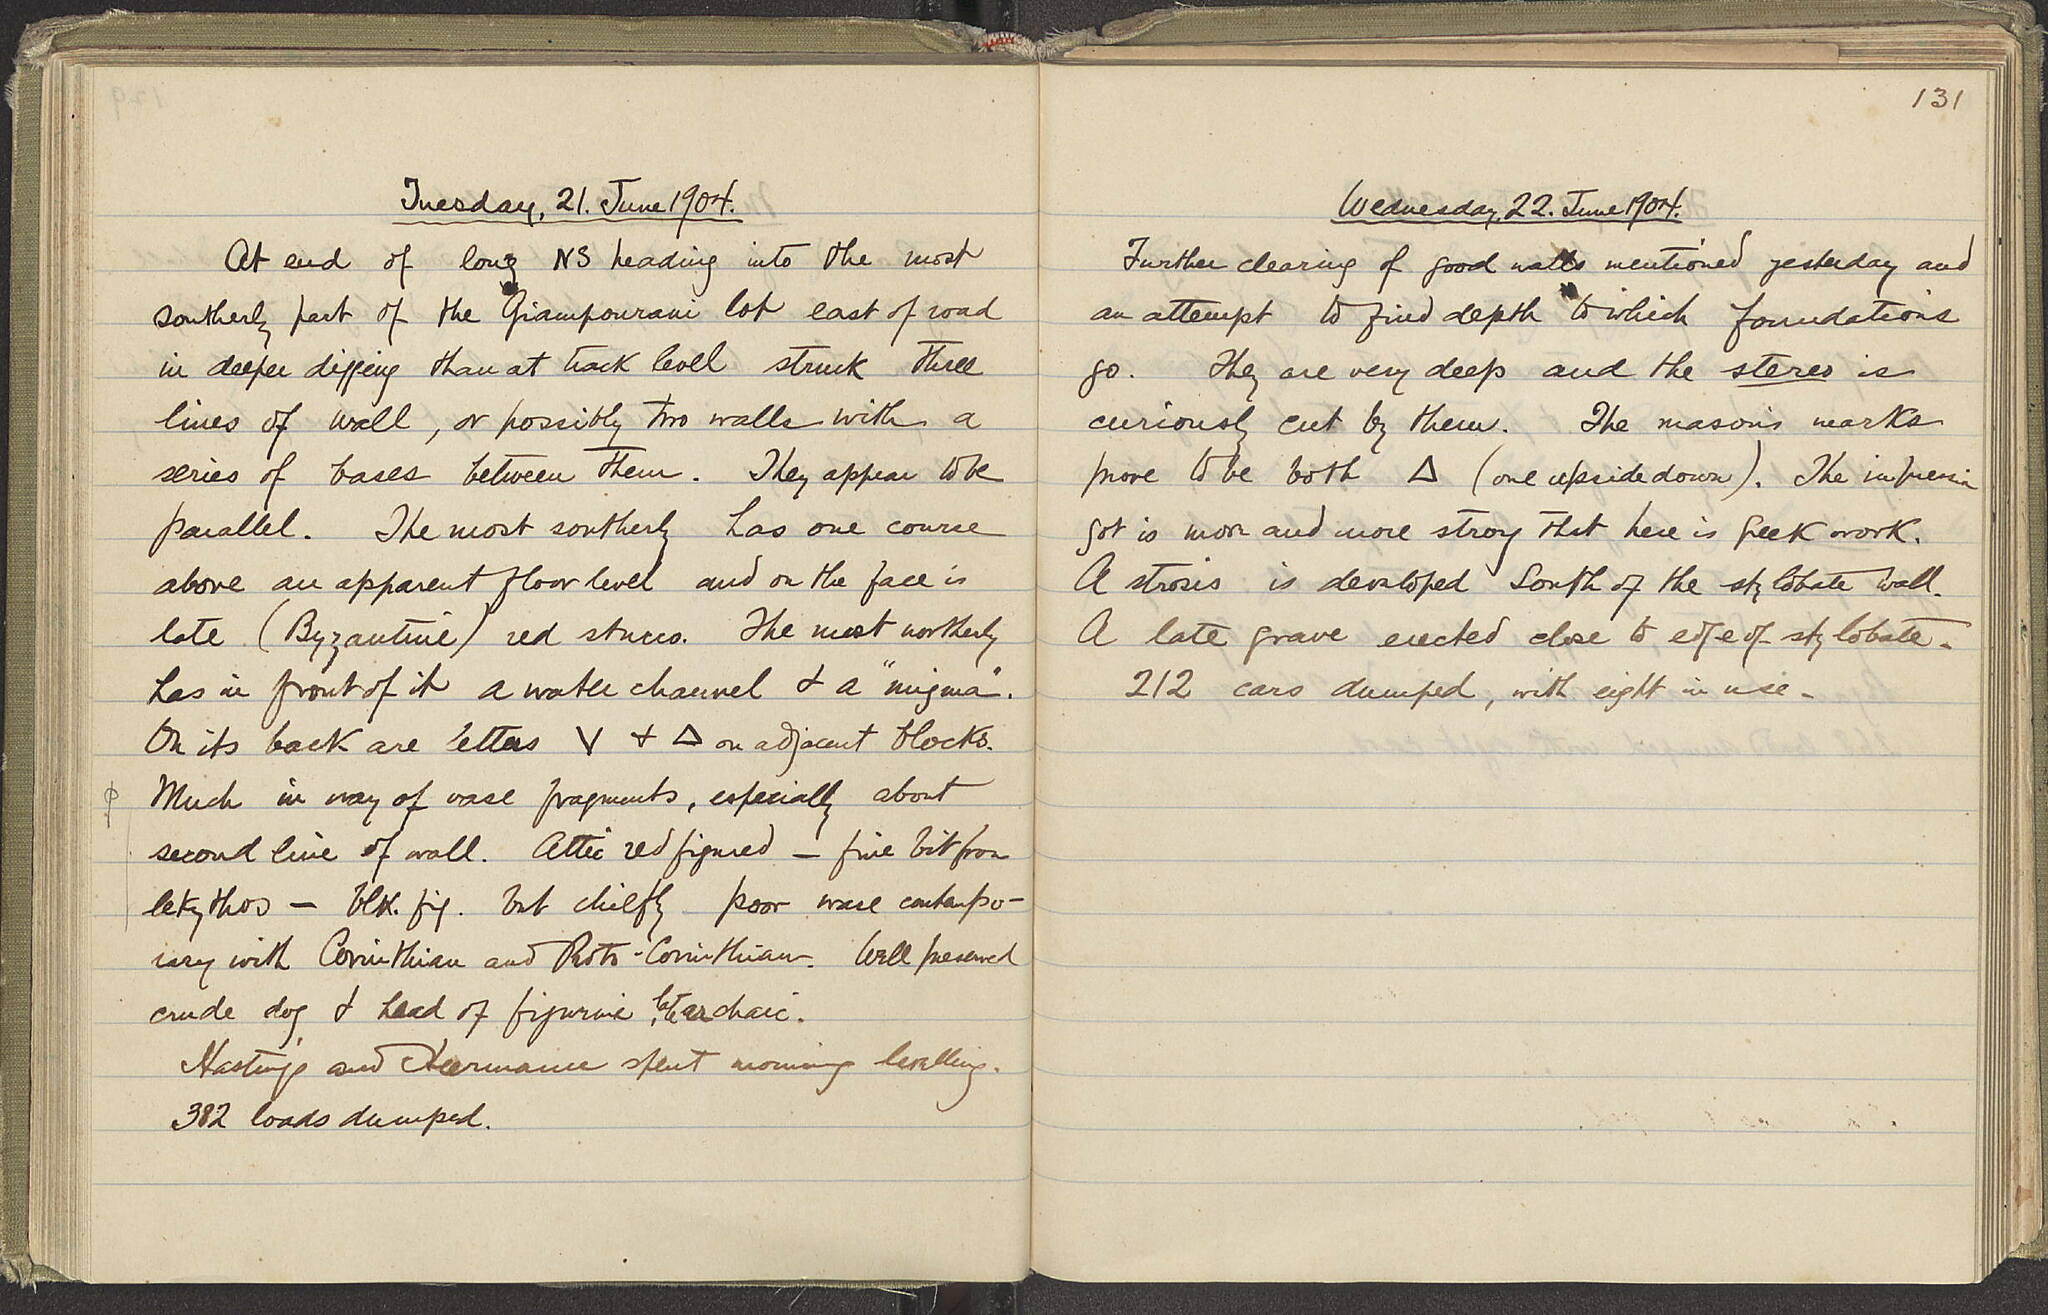 Tuesday, 21. June 1904.
At end of long NS heading into the most
southerly part of the Giampourani lot east of road
in deeper digging than at track level struck three
lines of wall, or possibly two walls with a
series of bases between them. They appear to be
parallel. The most southerly has one course
above an apparent floor level and on the face is
late (Byzantine) red stucco. The most northerly
has in front of it a water channel & a "migma".
On its back are letters V & Δ on adjacent blocks.
Much in way of vase fragments, especially about
second line of wall. Attic red figured — fine bit from
lekythos — blk. fig. but chiefly poor ware contempo-
rary with Corinthian and Proto-Corinthian. Well preserved
crude dog & head of figurine, late archaic.
Hastings and Heermance spent morning levelling.
382 loads dumped.
131
Wednesday, 22. June 1904.
Further clearing of good walls mentioned yesterday and
an attempt to find depth to which foundations
go. They are very deep and the stereo is
curiously cut by them. The mason's marks
prove to be both Δ (one upside down). The impression
got is more and more strong that here is Greek work.
A strosis is developed South of the stylobate wall.
A late grave erected close to edge of stylobate.
212 cars dumped, with eight in use.